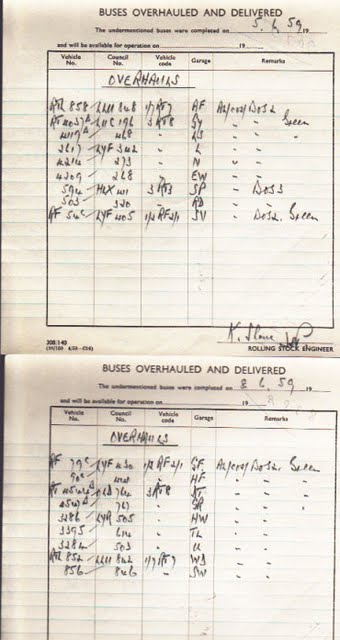 BUSES OVERHAULED AND DELIVERED
The undermentioned buses were completed on 5.6.59 19
and will be available for operation on 19
Vehicle No. Council No. Vehicle code Garage Remarks
OVERHAULS
RTL 858 LLU 848 1/7 RT7 AF
RT 4037 LUC 196 3 RT8 SY " " Green
4119 468 " LS " "
3617 LYF 342 " L " "
4214 273 " N " "
4209 268 " EW " "
594 HLX 411 3 RT3 SP " DOS3
503 320 " RD " "
RF 54 LYF 405 1/2 RF2/1 SV " DOS2 Green
K.
ROLLING STOCK ENGINEER
308/140
BUSES OVERHAULED AND DELIVERED
The undermentioned buses were completed on 8.6.59 19
and will be available for operation on 19
Vehicle No. Council No. Vehicle code Garage Remarks
OVERHAULS
RF 79 LYF 430 1/2 RF2/1 Green
90 HF " " "
RT 764 3 RT8 " " "
767 " " "
3286 LYR 505 " HW " "
3395 614 " TL " "
3284 503 " U " "
RTL 852 LLU 842 1/7 RT7 " "
856 846 " SW " "